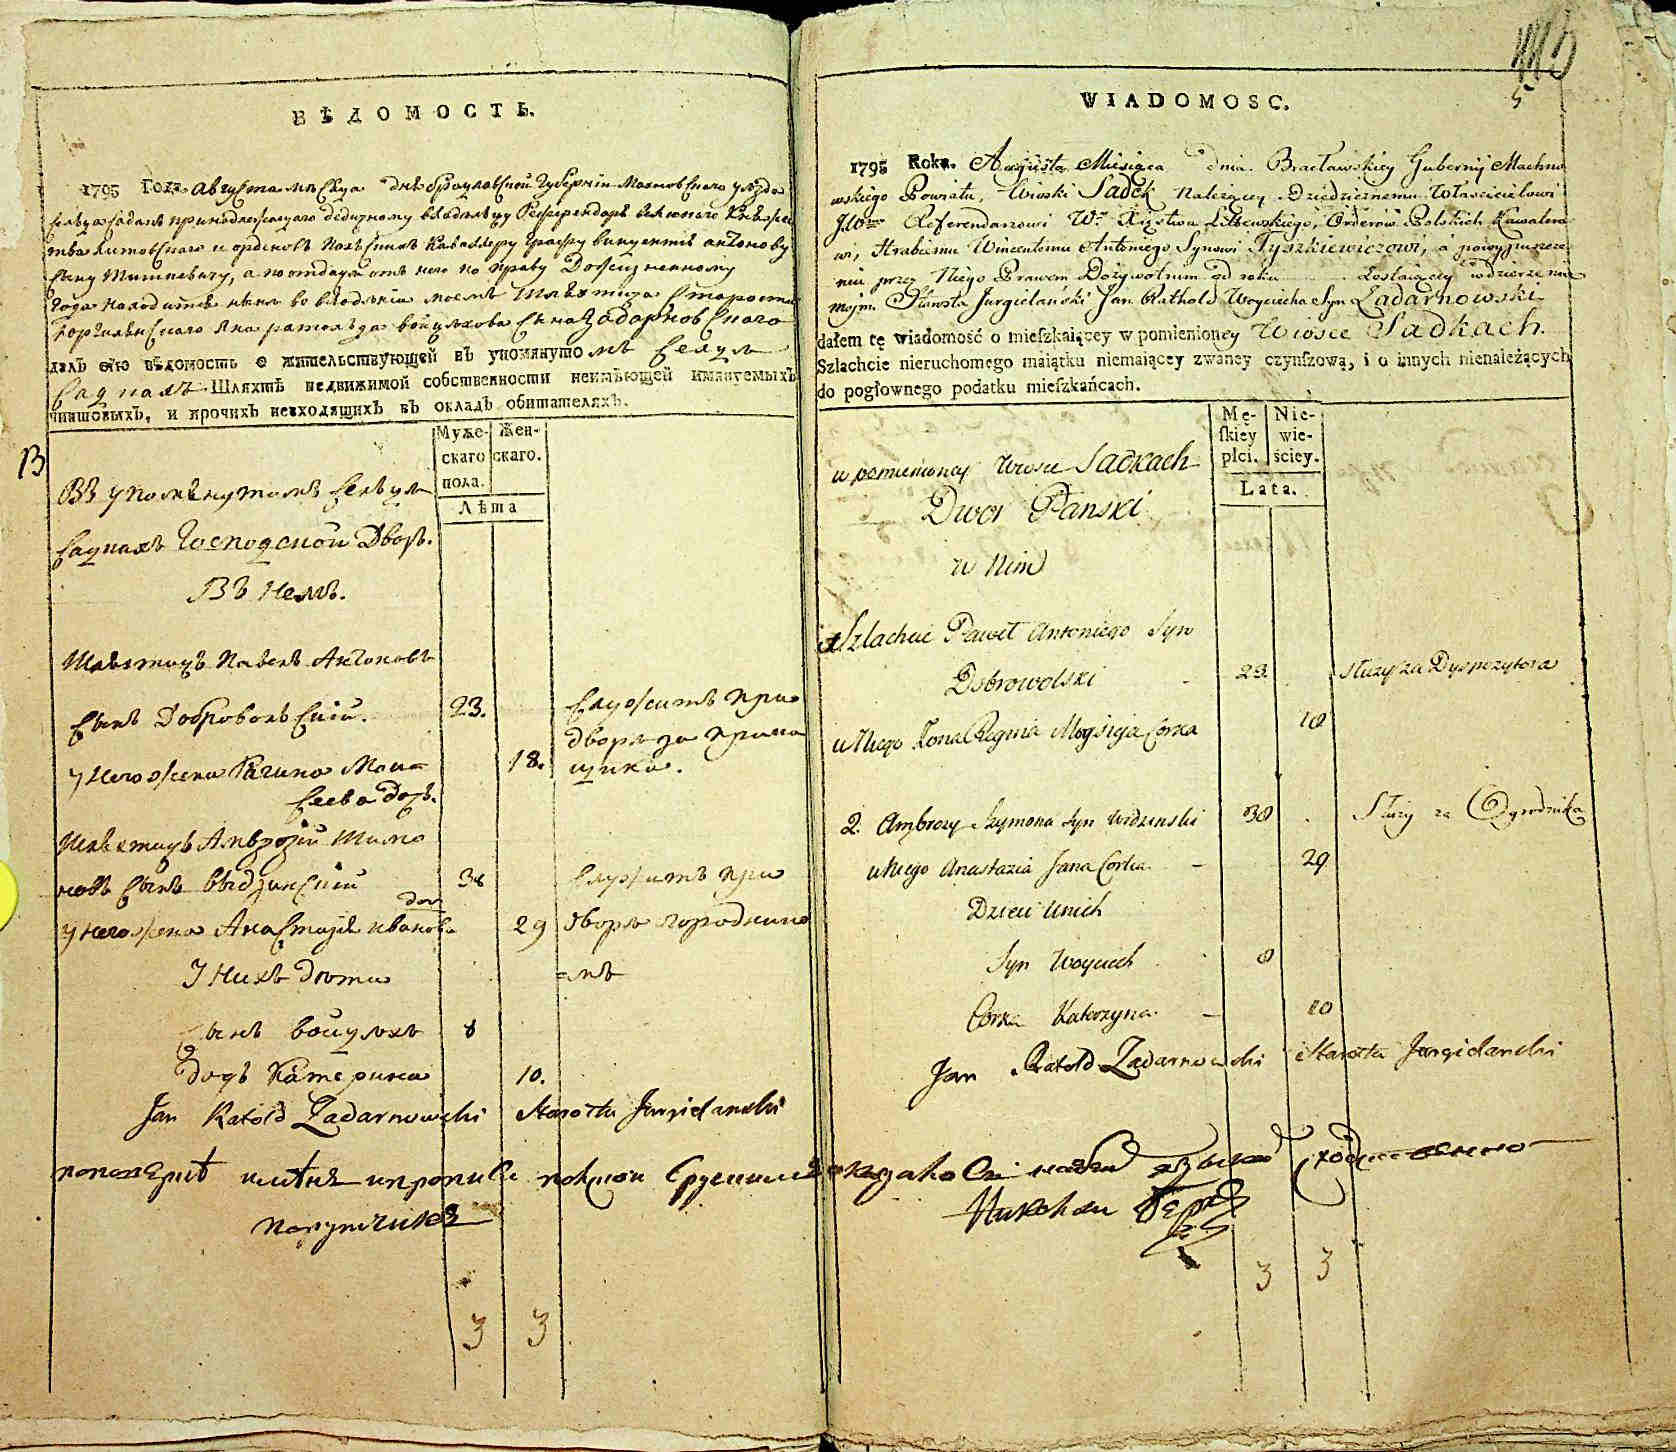 ВѢДОМОСТЬ.
1795 Года Августа мѣсяца дня Брацлавской Губернiи Махновскаго уезда
сельца Садакъ принадлежащаго дедичному владельцу Референдарѣ великаго Княже
ства Литовскаго и орденовъ Польскихъ Кавалеру Графу Викентiю Антонову
сыну Тишкевичу, а по отдаче отъ него по праву Дожизненному
года находится нынѣ во владѣнiи моемъ Шляхтича Старосты
Юргелянскаго Яна Ратольда Войцѣхова сына Задарновскаго
далъ сiю вѣдомость о жительствующей въ упомянутомъ сельце
Садкахъ Шляхтѣ недвижимой собственности неимѣющей имянуемыхъ
чиншовыхъ, и прочихъ невходящихъ въ окладъ обитателяхъ.
Муже- Жен-
скаго скаго.
пола.
Лѣта
13
Въ упомянутомъ сельце
Садкахъ Господской Дворъ.
Въ немъ.
Шляхтичъ Павелъ Антоновъ
сынъ Добровольскiй. 23. служитъ при
дворе за прика
у него жена Рагина Мои- 18. щика.
сеева дочь.
Шляхтичъ Амврозiй Шимо
новъ сынъ Выдзинскiй 38 служитъ при
у него жена Анастазiя Иванова доч 29 дворе городнико
У нихъ дѣти =мъ
сынъ Войцѣхъ 8
дочь Катерина 10.
Jan Ratold Zadarnowski Starosta Jurgielanski
порутчикъ
3 3
WIADOMOSC.
115
5
1795 Roku. Augusta Miesiąca dnia Bracławskiey Gubernij Machno
wskiego Powiatu, Wioski Sadek Należącey Dziedzicznemu Właścicielowi
JWmu Referendarzowi W. Xięstwa Litewskiego, Orderow Polskich Kawalero
wi, Hrabiemu Wincentemu Antoniego Synowi Tyszkiewiczowi, a po wypuszcze
niu przez Niego Prawem Dożywotnim od roku zostaiącey w dzierżeniu
moim. Starosta Jurgielański Jan Rathold Woyciecha Syn Zadarnowski
dałem tę wiadomość o mieſzkaiącey w pomienioney Wiosce Sadkach.
Szlachcie nieruchomego maiątku niemaiącey zwaney czynſzową, i o innych nienależących
do pogłownego podatku mieſzkańcach.
Mę- Nie-
ſkiey wie-
płci. ściey.
Lata.
w pomienioney Wiosce Sadkach
Dwor Panski
w Nim
1 Szlachcic Paweł Antoniego Syn
Dobrowolski 23. służy za Dysponytora
u Niego Żona Regina Moyśieja Corka 18
2. Ambrozy Szymona syn Widzinski 38 Służy za Ogrodnika
u Niego Anastazia Jana Corka 29
Dzieci u nich
Syn Woyciech 8
Corka Katerzyna 10
Jan Ratold Zadarnowski Starosta Jurgielanski
3 3